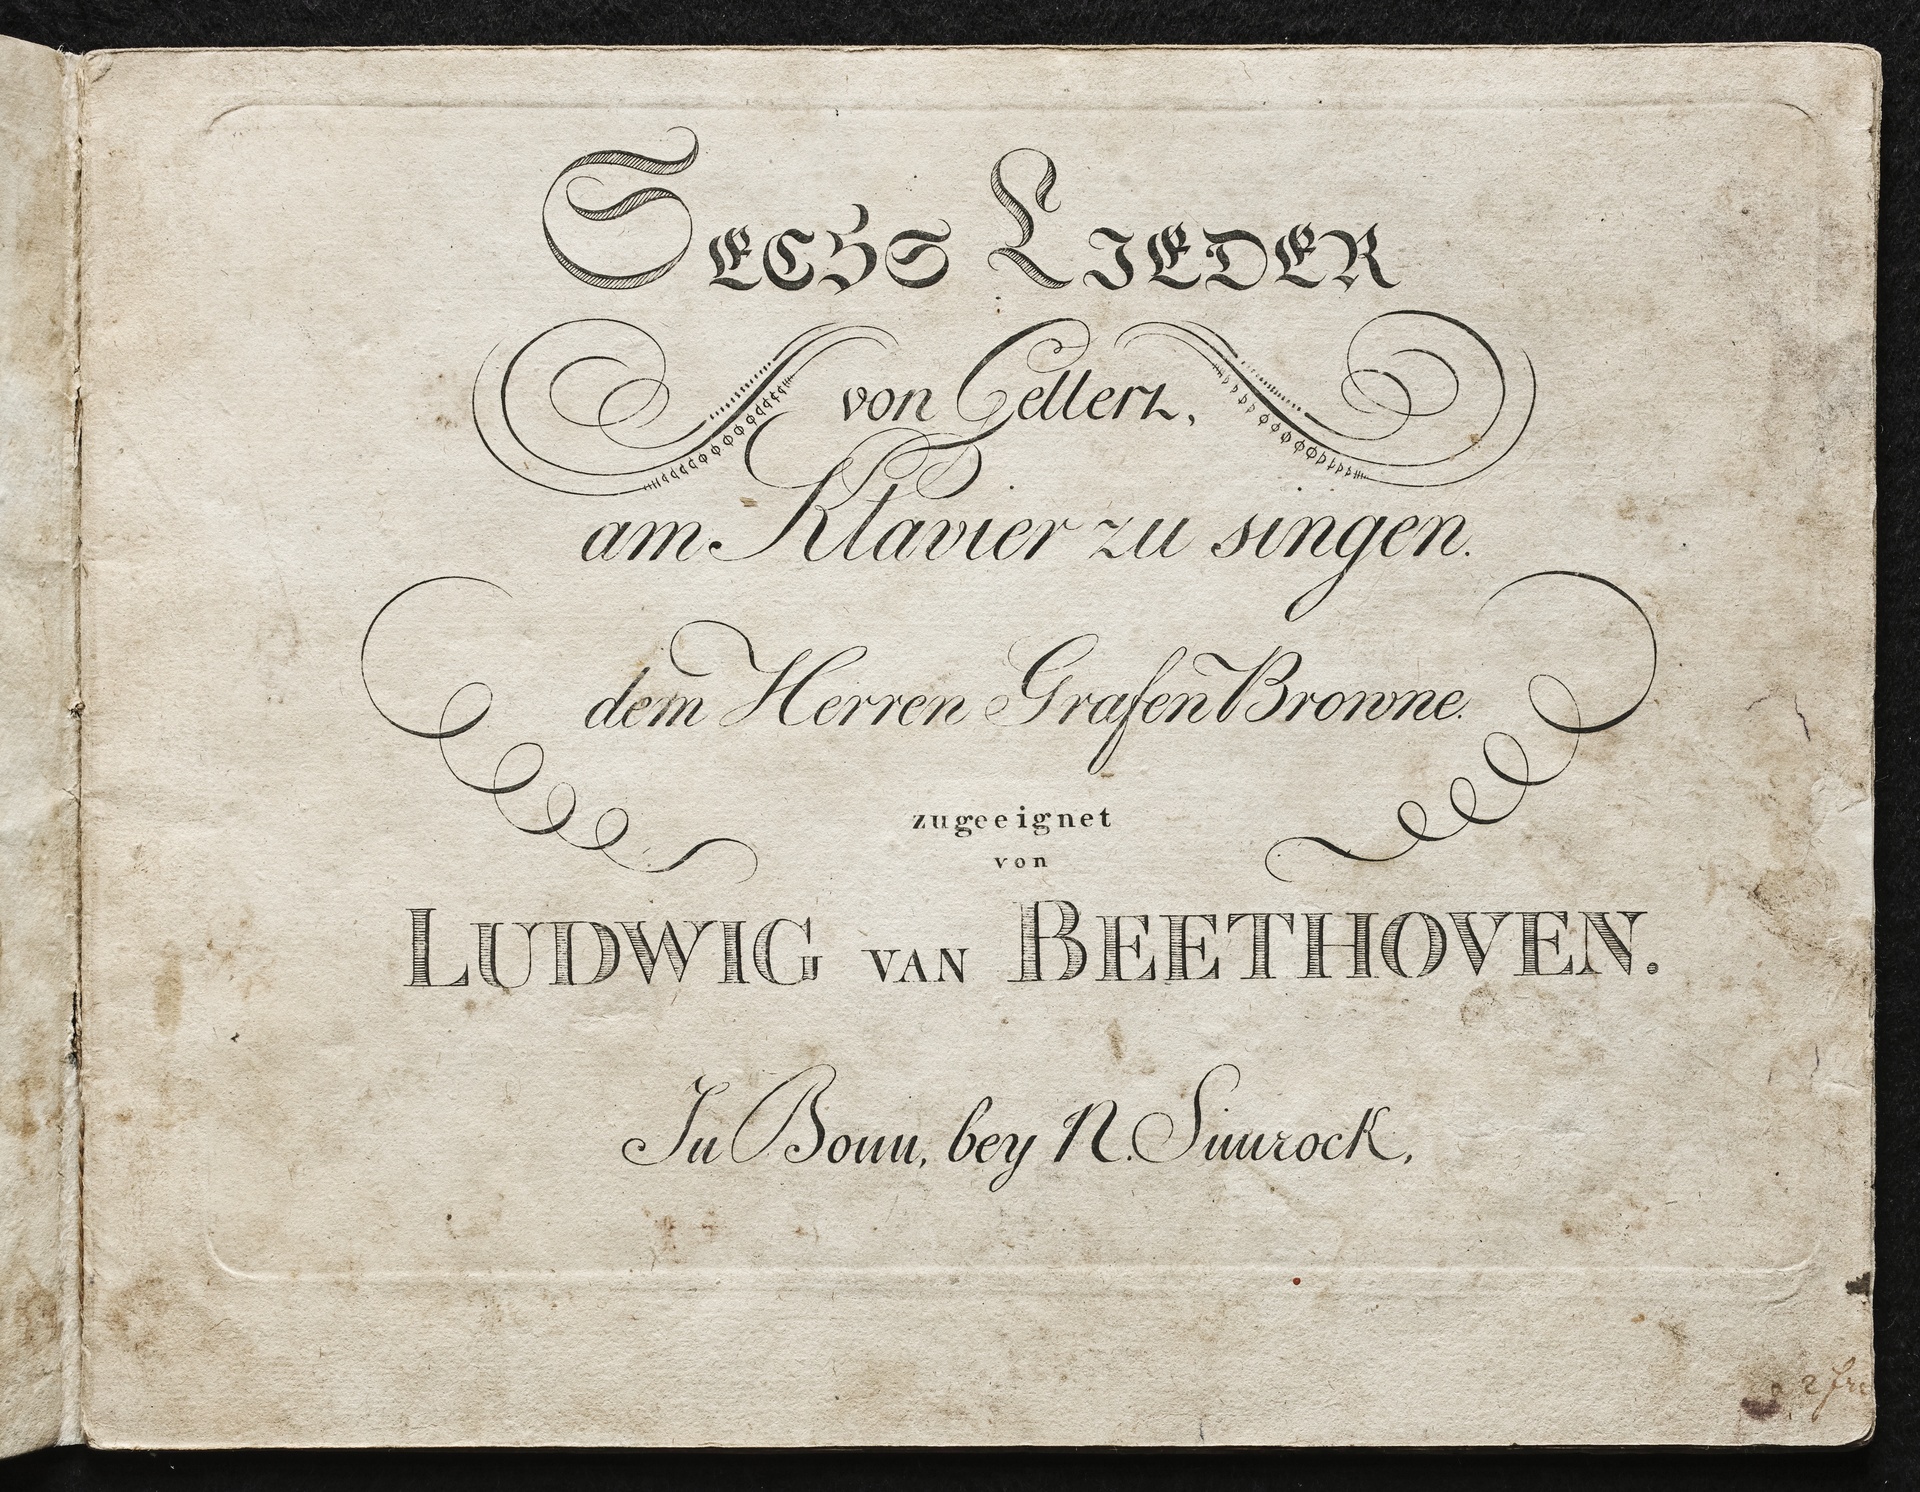 Sechs Lieder
von Gellert,
am Klavier zu singen.
dem Herren Grafen Browne.
zugeeignet
von
LUDWIG VAN BEETHOVEN.
In Bonn, bey N. Simrock.
2 frc